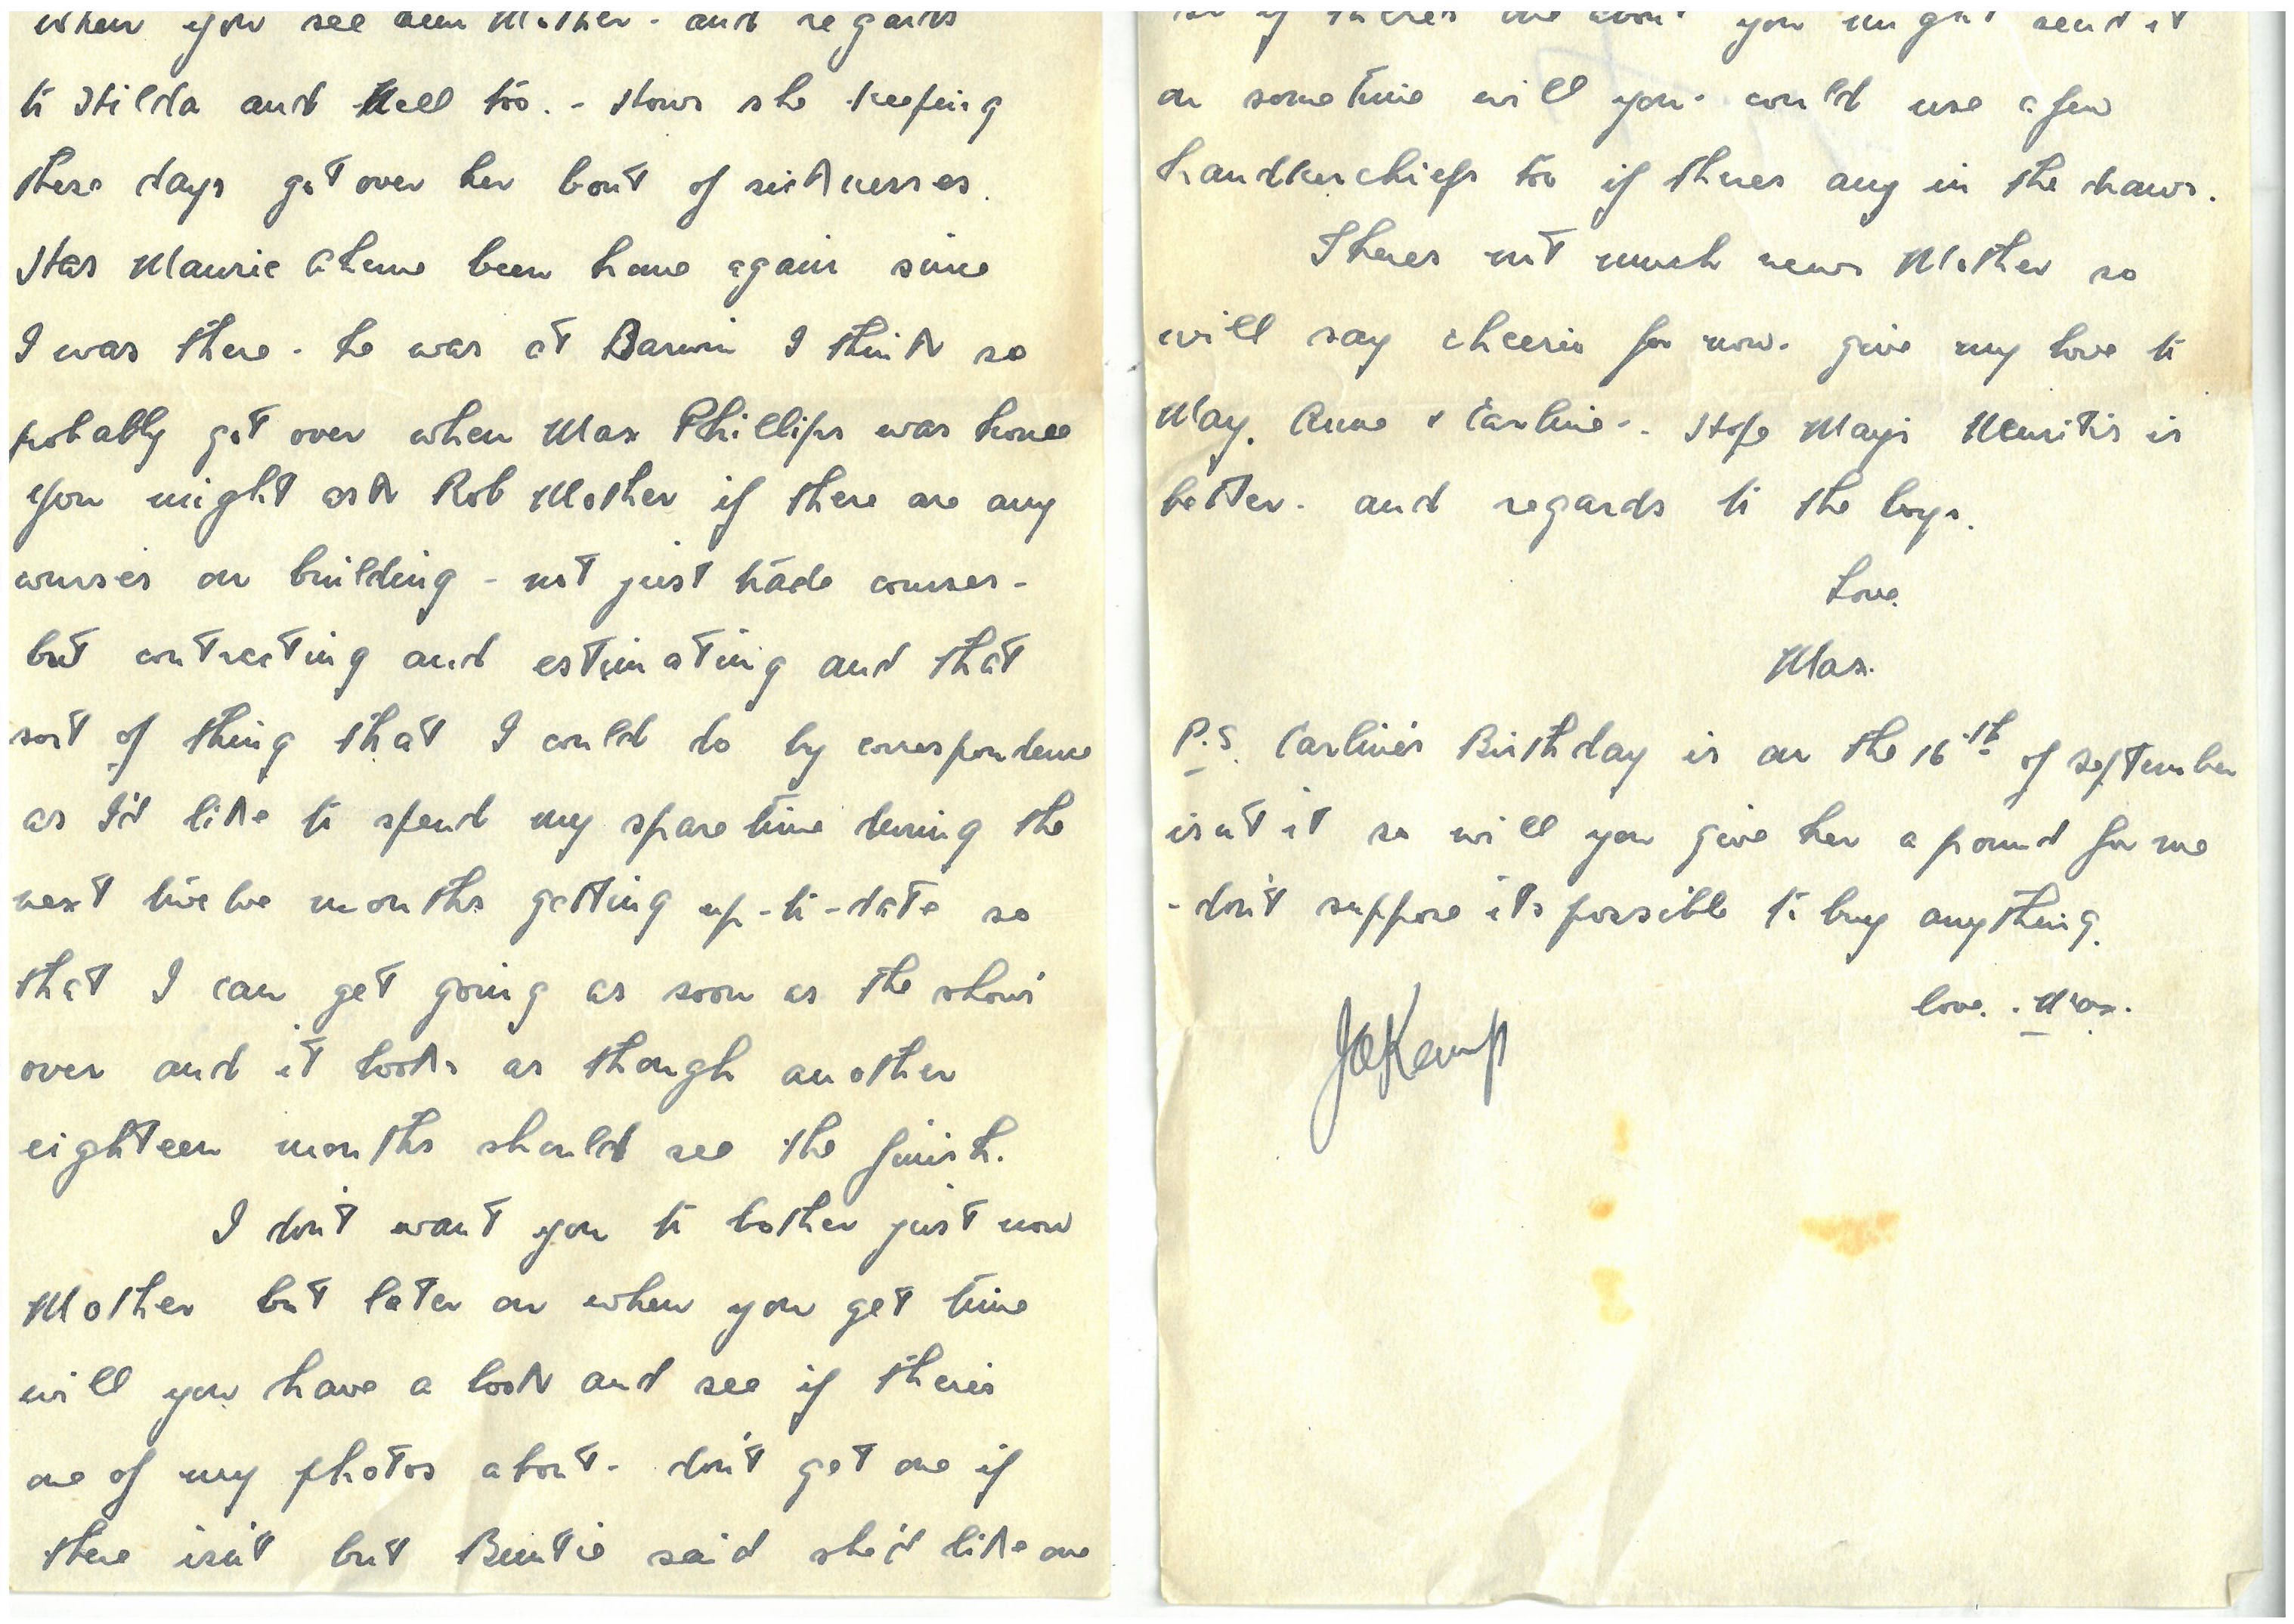 when you see them Mother - and regards
to Hilda and Nell too. - Hows she keeping
these days got over her bout of sicknesses.
Has Maurie been home again since
I was there - he was at Darwin I think so
probably got over when Max Phillips was home
You might ask Rob Mother if there are any
courses on building - not just trade courses -
but contracting and estimating and that
sort of thing that I could do by correspondence
as I'd like to spend my spare time during the
next twelve months getting up-to-date so
that I can get going as soon as the show's
over and it looks as though another
eighteen months should see the finish.
I don't want you to bother just now
Mother but later on when you get time
will you have a look and see if there's
one of my photos about - don't get one if
there isn't but Buntie said she'd like one
so if theres one about you might send it
on sometime will you - could use a few
handkerchiefs too if theres any in the draws.
Theres not much news Mother so
will say cheerio for now - give my love to
May, Anne & Carline - Hope May's Neuritis is
better - and regards to the boys.
Love.
Max.
P.S. Carline's Birthday is on the 16th of September
isn't it so will you give her a pound for me
- don't suppose its possible to buy anything.
love. . Max.
Kemp